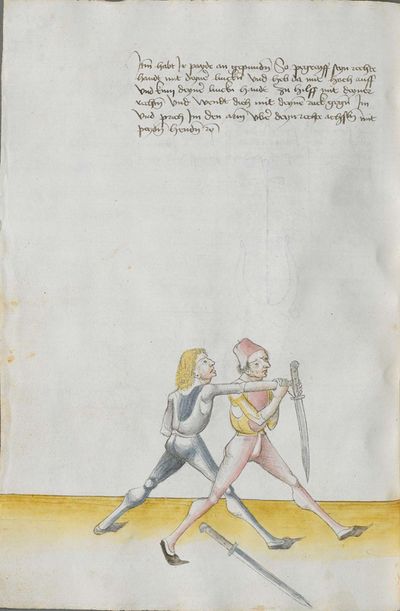 Itm habt Ir payde an gepundn So pegreiff seyn rechte
handt mit deyner lincken Vnd heb da mit hoch auff
Vnd kum deyner lincken hande zu hilff mit deyner
rechten Vnd wendt dich mit deynem ruck gegn Im
Vnd prich Im den arm vber deyn rechte achsseln mit
payden hendn